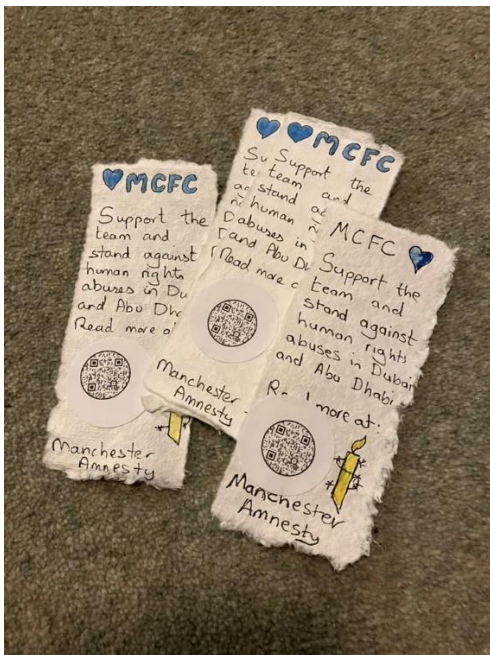 MCFC
Support the
team and
stand against
human rights
abuses in Du
and Abu Dh
Read more a
Manchester
Amnesty
MCFC
Su Support the
te team and
stand
human
abuses in
and Abu Dh
Read more
Manchester
Amnesty
MCFC
Support the
team and
stand against
human rights
abuses in Dubai
and Abu Dhabi
more at:
Manchester
Amnesty